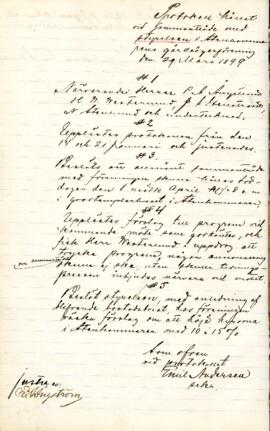 Protokoll hållet
vid sammanträde med
styrelsen i
gårdsegareförening
den 29 Mars 1899
# 1
Närvarande Herrar
H. W. Westerlund, J. A.
N. och undertecknad.
# 2
Upplästes protokollen från den
14 och 21 januari och justerades.
# 3
Beslöts att allmänt sammanträde
med föreningen skulle hållas lör
dagen den 1 nästk April kl 8 e.m
i
# 4
Upplästes förslag till program vid
kommande möte som godkändes, och
fick Herr Westerlund i uppdrag att
trycka program, någon annonsering
om sammanträdet
skulle ej ske, utan skulle tidnings
pressen inbjudas närvara vid mötet
# 5
Beslöt styrelsen, med anledning af
förestående hos föreningen
väcka förslag om att höja hyrorna
i med 10 à 15 %
Som ofvan
vid protokollet
Emil Andersen
sekr.
Justeras